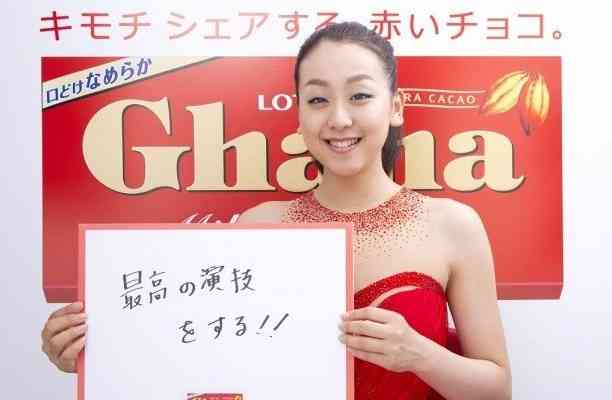 キモチ シェアする、赤いチョコ。
口どけなめらか
LOT RA CACAO
Gha a
最高の演技
をする!!